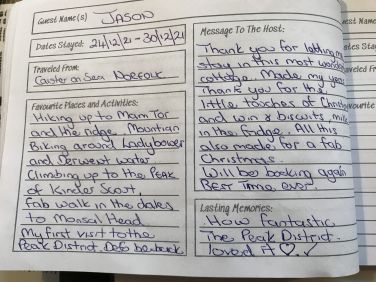 Guest Name(s) JASON
Dates Stayed: 24/12/21 - 30/12/21
Travelled From:
Caister on Sea NORFOLK
Favourite Places and Activities:
Hiking up to Mam Tor
and the ridge. Mountian
Biking around Ladybower
and Derwent water
Climbing up to the PEAK
of Kinder Scout,
fab walk in the dales
to Monsal Head
My first visit to the
Peak District. Defo be back
Message To The Host:
Thank you for letting me
stay in this most wonder
cottage. Made my year
Thank you for the
little touches of Christ
and win & biscuits, milk
in the fridge. All this
also made for a fab
Christmas.
Will be booking again
BEST Time ever.
Lasting Memories:
How fantastic
The Peak District.
loved it
est Name
ates Stay
avelled Fr
vourite